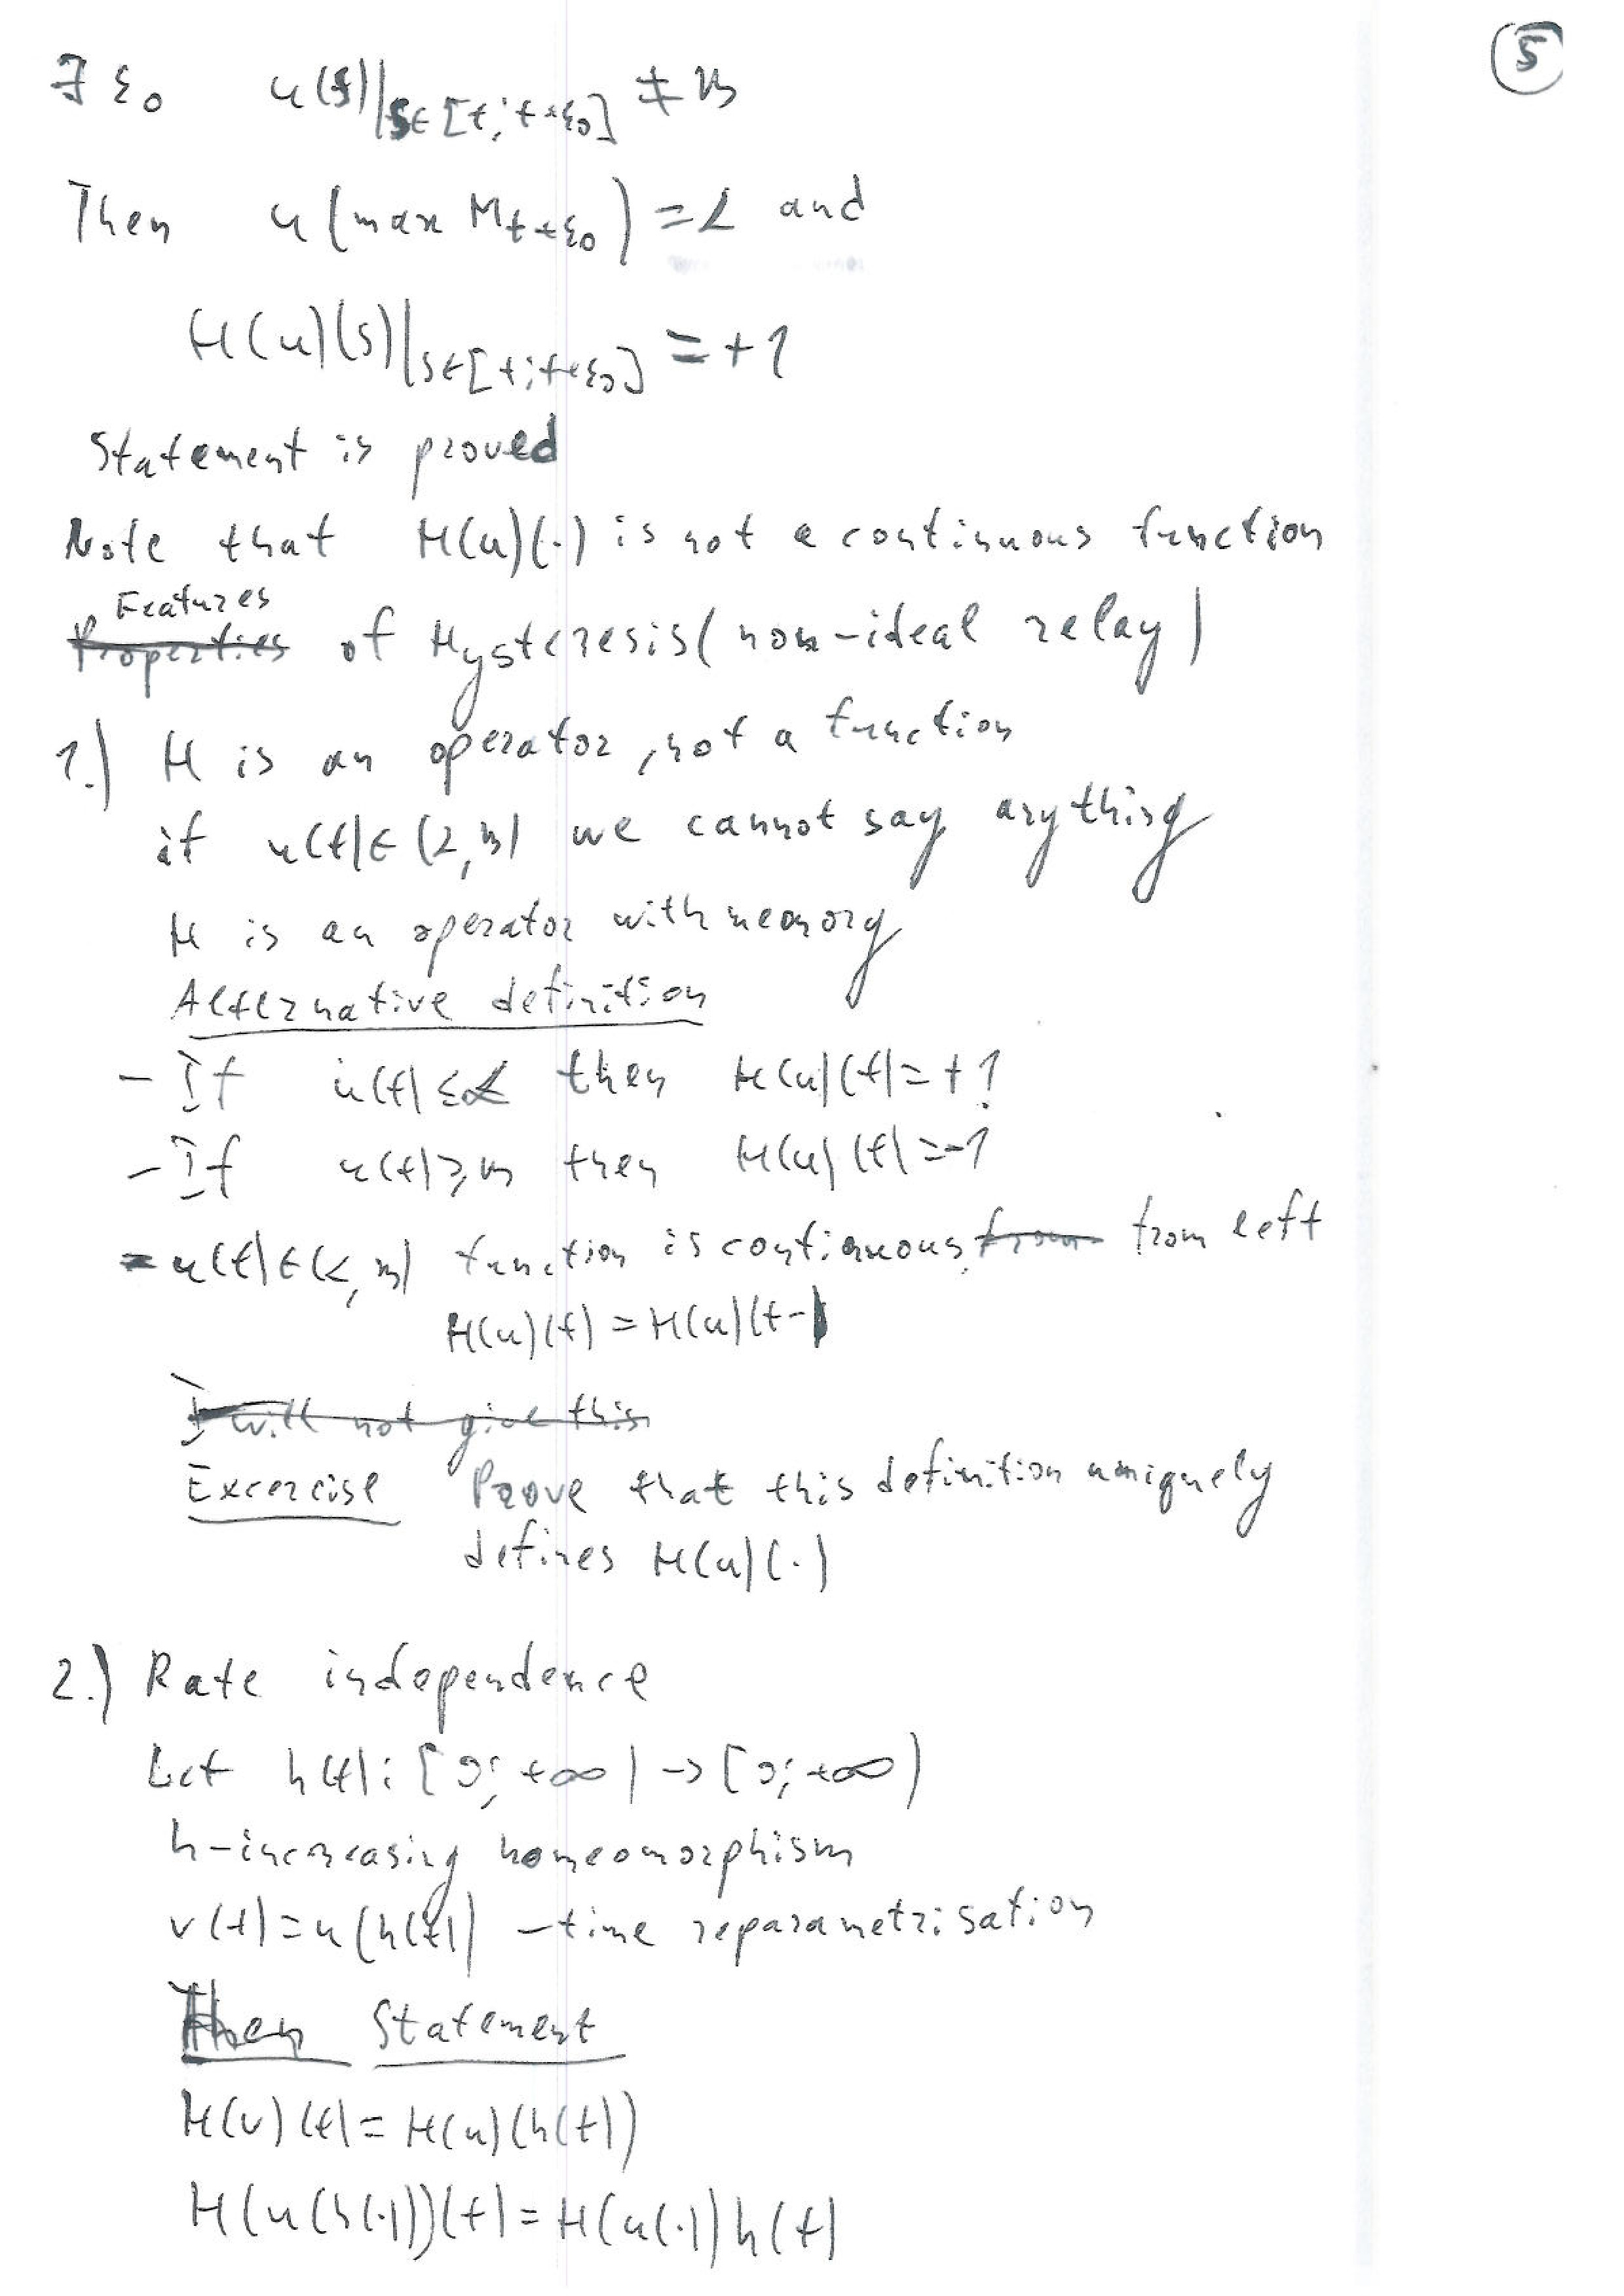 5
∃ ε₀ u(s)|s∈[t; t+ε₀] ≠ β
Then u(max M_{t+ε₀}) = α and
H(u)(s)|s∈[t; t+ε₀] = +1
Statement is proved
Note that H(u)(·) is not a continuous function
Features
Properties of Hysteresis (non-ideal relay)
1.) H is an operator, not a function
if u(t) ∈ (α, β) we cannot say anything
H is an operator with memory
Alternative definition
- If u(t) ≤ α then H(u)(t) = +1
- If u(t) ≥ β then H(u)(t) = -1
= u(t) ∈ (α, β) function is continuous from from left
H(u)(t) = H(u)(t-)
I will not give this
Excercise Prove that this definition uniquely
defines H(u)(·)
2.) Rate independence
Let h(t): [0; +∞) → [0; +∞)
h - increasing homeomorphism
v(t) = u(h(t)) - time reparametrisation
Then Statement
H(v)(t) = H(u)(h(t))
H(u(h(·)))(t) = H(u(·)) h(t)